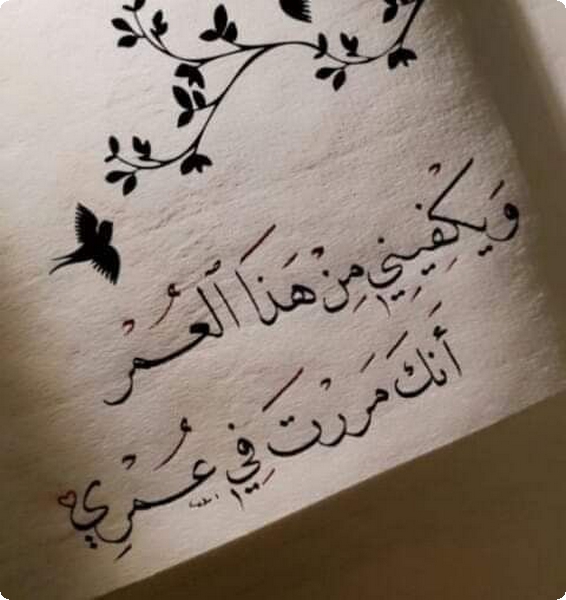 وَيكْفيني مِنْ هَذا العُمْر
أنَكَ مَرَرْتَ فِي عُمْرِي